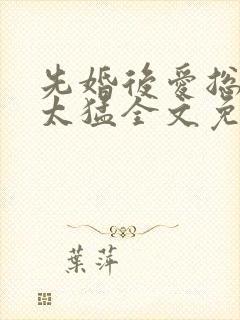 先婚後愛總
太猛全文免
葉萍